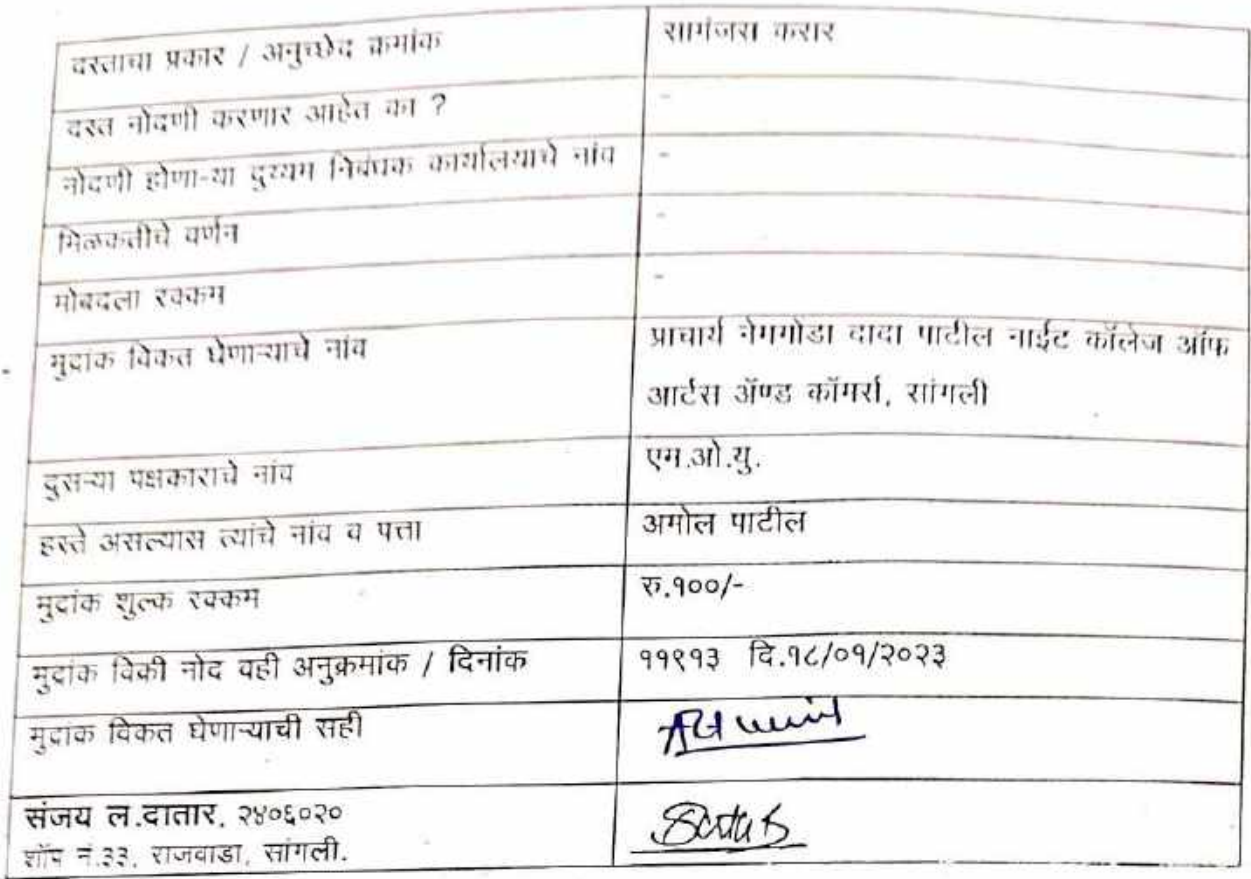 दस्ताचा प्रकार / अनुच्छेद क्रमांक
सामंजस करार
दस्त नोदणी करणार आहेत का ?
-
नोदणी होणा-या दुय्यम निबंधक कार्यालयाचे नांव
-
मिळकतीचे वर्णन
-
मोबदला रक्कम
-
मुद्रांक विकत घेणाऱ्याचे नांव
प्राचार्य नेमगोंडा दादा पाटील नाईट कॉलेज ऑफ
आर्टस अ‍ॅण्ड कॉमर्स, सांगली
दुसऱ्या पक्षकाराचे नांव
एम.ओ.यु.
हस्ते असल्यास त्यांचे नांव व पत्ता
अमोल पाटील
मुद्रांक शुल्क रक्कम
रु.१००/-
मुद्रांक विकी नोद वही अनुक्रमांक / दिनांक
११९१३ दि.१८/०१/२०२३
मुद्रांक विकत घेणाऱ्याची सही
संजय ल.दातार, २४०६०२०
शॉप नं.३३, राजवाडा, सांगली.